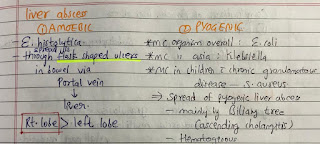 liver abscess
① AMOEBIC
- E. histolytica
spread
through flask shaped ulcers
in bowel via
Portal vein
↓
liver.
Rt. lobe > left lobe
② PYOGENIC
* mc organism overall : E. coli
* mc in asia : Klebsiella
* MC in children c chronic granulomatous
disease - S. aureus
⇒ Spread of pyogenic liver abcess
- mainly by Biliary tree
(ascending cholangitis)
- Hematogenous